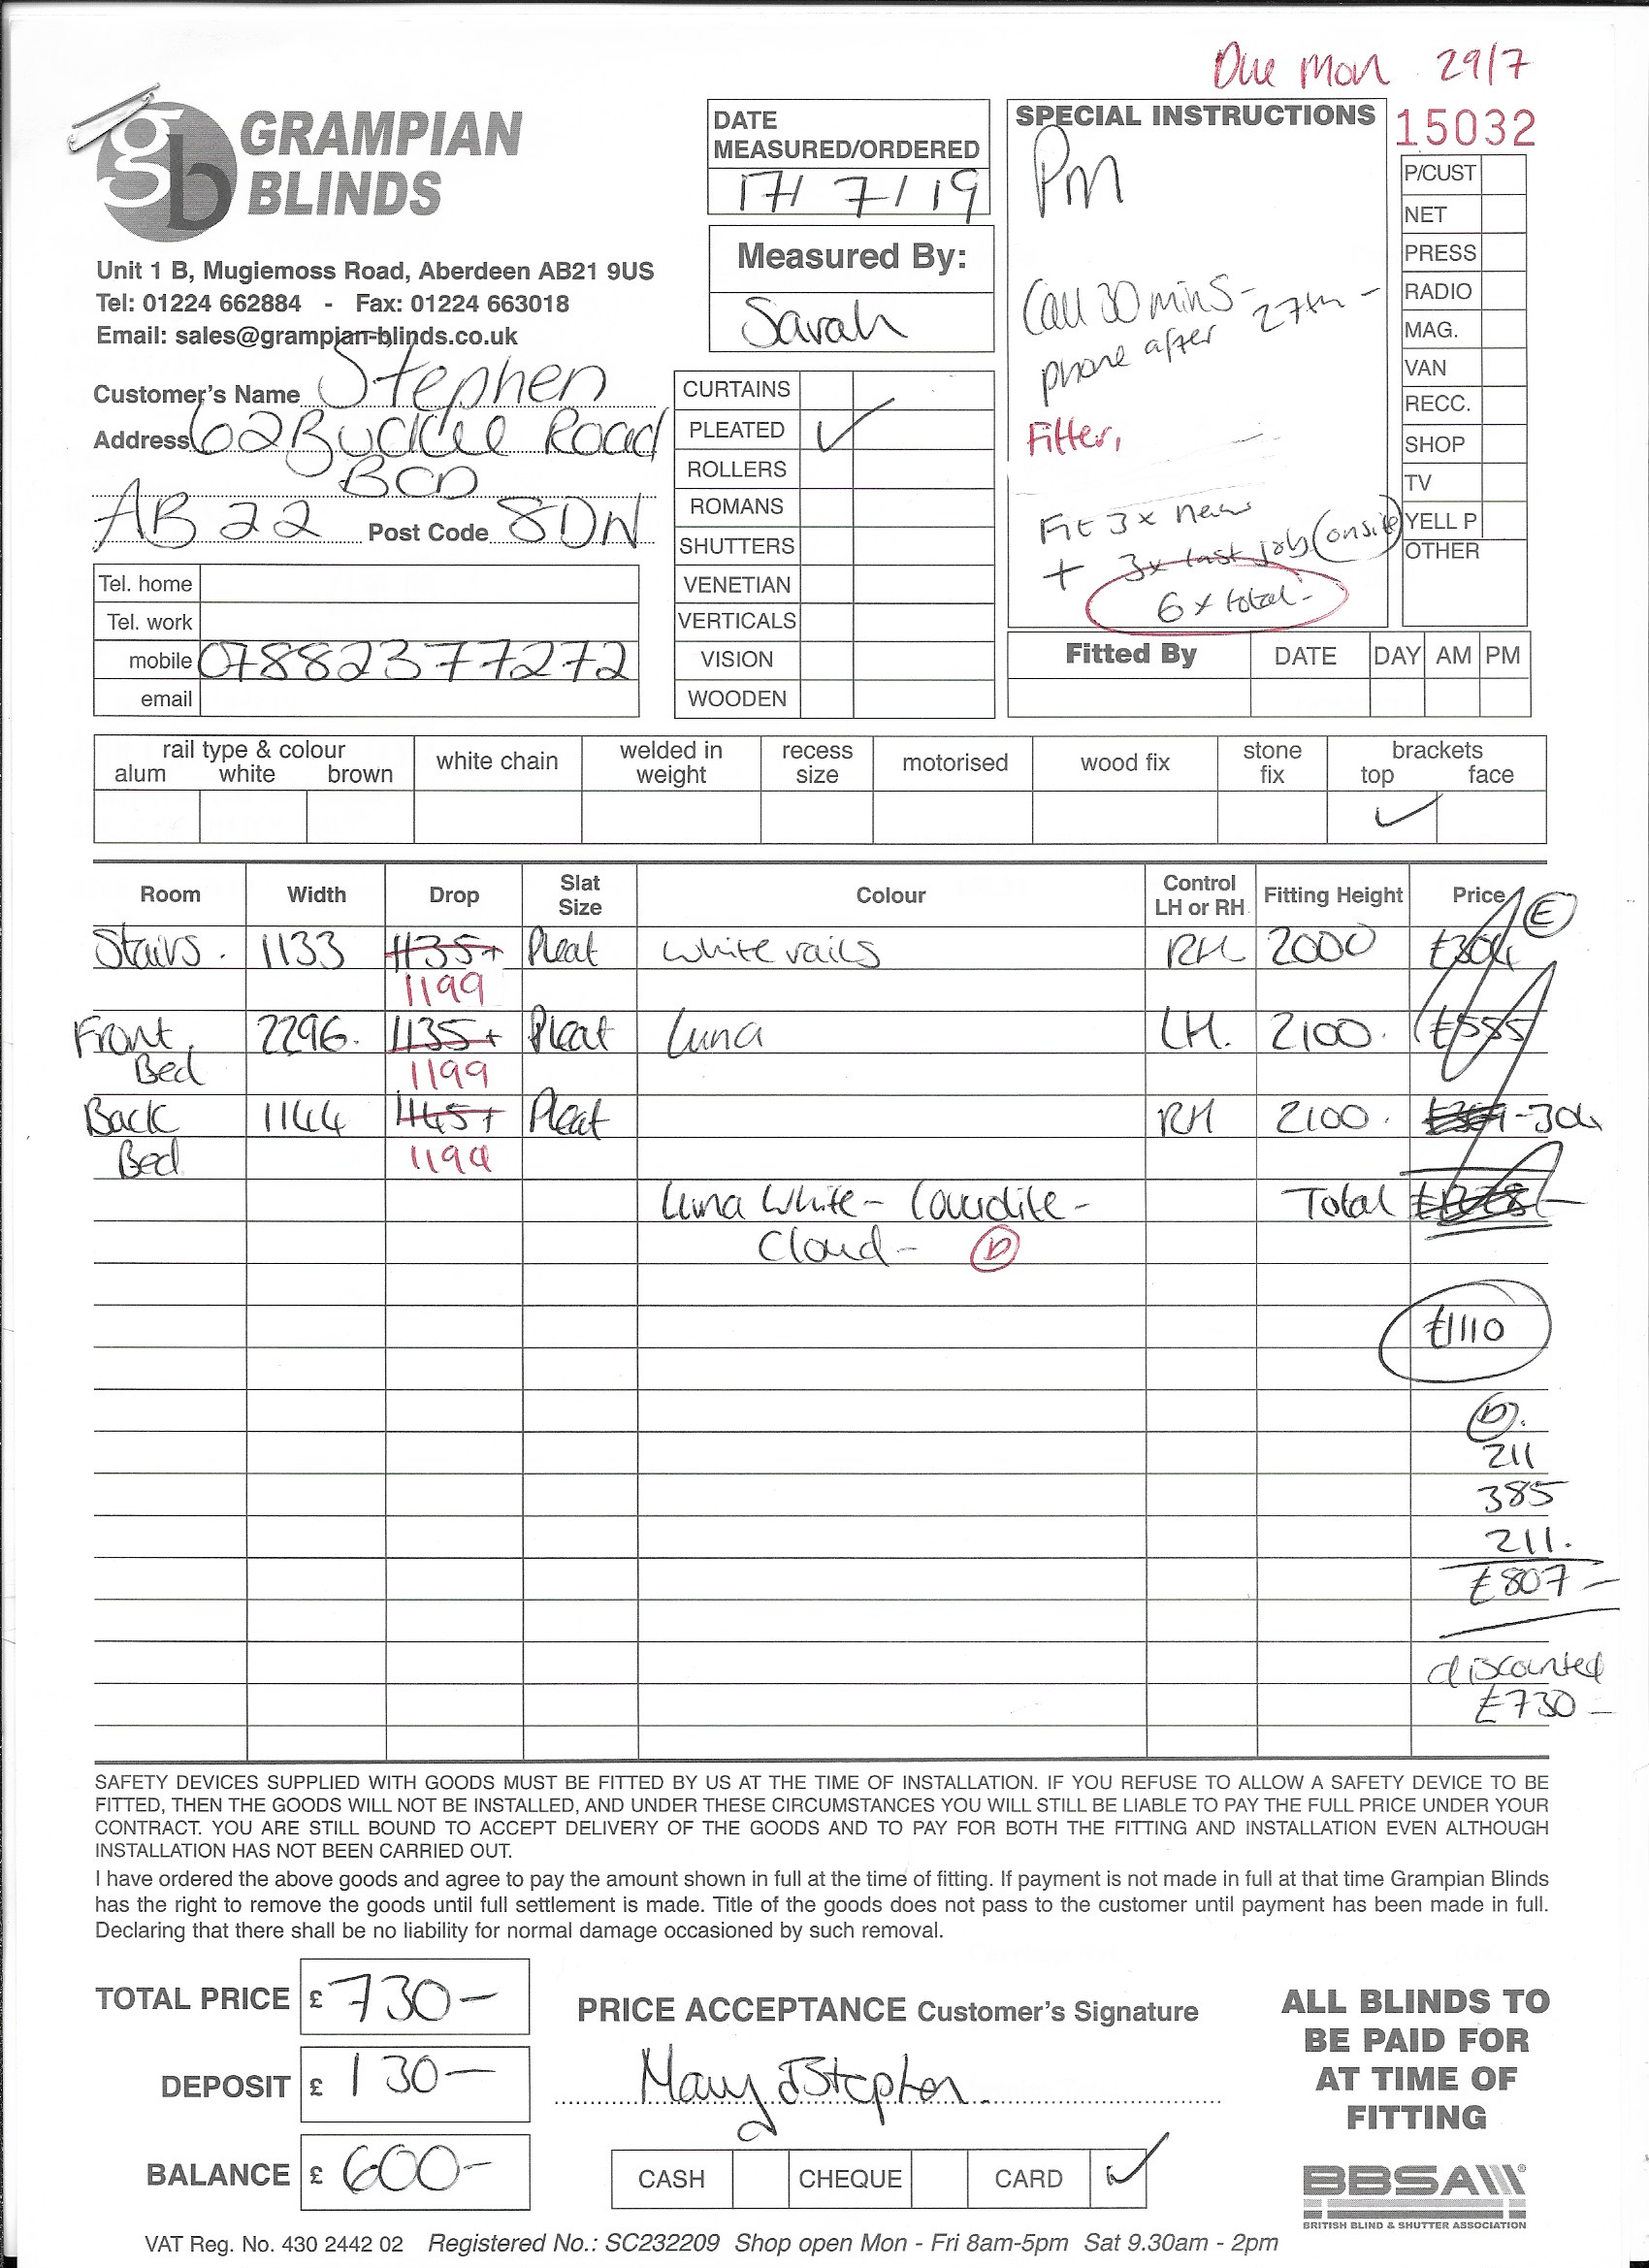 Due Mon 29/7
GRAMPIAN
BLINDS
gb
Unit 1 B, Mugiemoss Road, Aberdeen AB21 9US
Tel: 01224 662884 - Fax: 01224 663018
Email: sales@grampian-blinds.co.uk
DATE
MEASURED/ORDERED
17/7/19
Measured By:
Sarah
SPECIAL INSTRUCTIONS
PM
Call 30 mins-
phone after 27th -
Fitter,
Fit 3x new
+ 3x last job (onsite)
6 x total-
15032
P/CUST
NET
PRESS
RADIO
MAG.
VAN
RECC.
SHOP
TV
YELL P
OTHER
Customer's Name Stephen
Address 62 Buckie Road
BOD
AB22 Post Code 8DN
Tel. home
Tel. work
mobile 07882377272
email
CURTAINS
PLEATED ✓
ROLLERS
ROMANS
SHUTTERS
VENETIAN
VERTICALS
VISION
WOODEN
Fitted By DATE DAY AM PM
rail type & colour white chain welded in weight recess size motorised wood fix stone fix brackets
alum white brown top face
✓
Room Width Drop Slat Size Colour Control LH or RH Fitting Height Price
E
Stairs. 1133 1135+ Pleat White rails RH 2000 £304
1199
Front 2296. 1135+ Pleat Luna LH. 2100. £585
Bed 1199
Back 1144 1145+ Pleat RH 2100. -304
Bed 1194
Luna White- - Total
Cloud- D
£1110
D.
211
385
211.
£807-
discounted
£730-
SAFETY DEVICES SUPPLIED WITH GOODS MUST BE FITTED BY US AT THE TIME OF INSTALLATION. IF YOU REFUSE TO ALLOW A SAFETY DEVICE TO BE
FITTED, THEN THE GOODS WILL NOT BE INSTALLED, AND UNDER THESE CIRCUMSTANCES YOU WILL STILL BE LIABLE TO PAY THE FULL PRICE UNDER YOUR
CONTRACT. YOU ARE STILL BOUND TO ACCEPT DELIVERY OF THE GOODS AND TO PAY FOR BOTH THE FITTING AND INSTALLATION EVEN ALTHOUGH
INSTALLATION HAS NOT BEEN CARRIED OUT.
I have ordered the above goods and agree to pay the amount shown in full at the time of fitting. If payment is not made in full at that time Grampian Blinds
has the right to remove the goods until full settlement is made. Title of the goods does not pass to the customer until payment has been made in full.
Declaring that there shall be no liability for normal damage occasioned by such removal.
TOTAL PRICE £ 730-
DEPOSIT £ 130-
BALANCE £ 600-
PRICE ACCEPTANCE Customer's Signature
Mary J Stephen.
CASH CHEQUE CARD ✓
ALL BLINDS TO
BE PAID FOR
AT TIME OF
FITTING
BBSA
BRITISH BLIND & SHUTTER ASSOCIATION
VAT Reg. No. 430 2442 02 Registered No.: SC232209 Shop open Mon - Fri 8am-5pm Sat 9.30am - 2pm